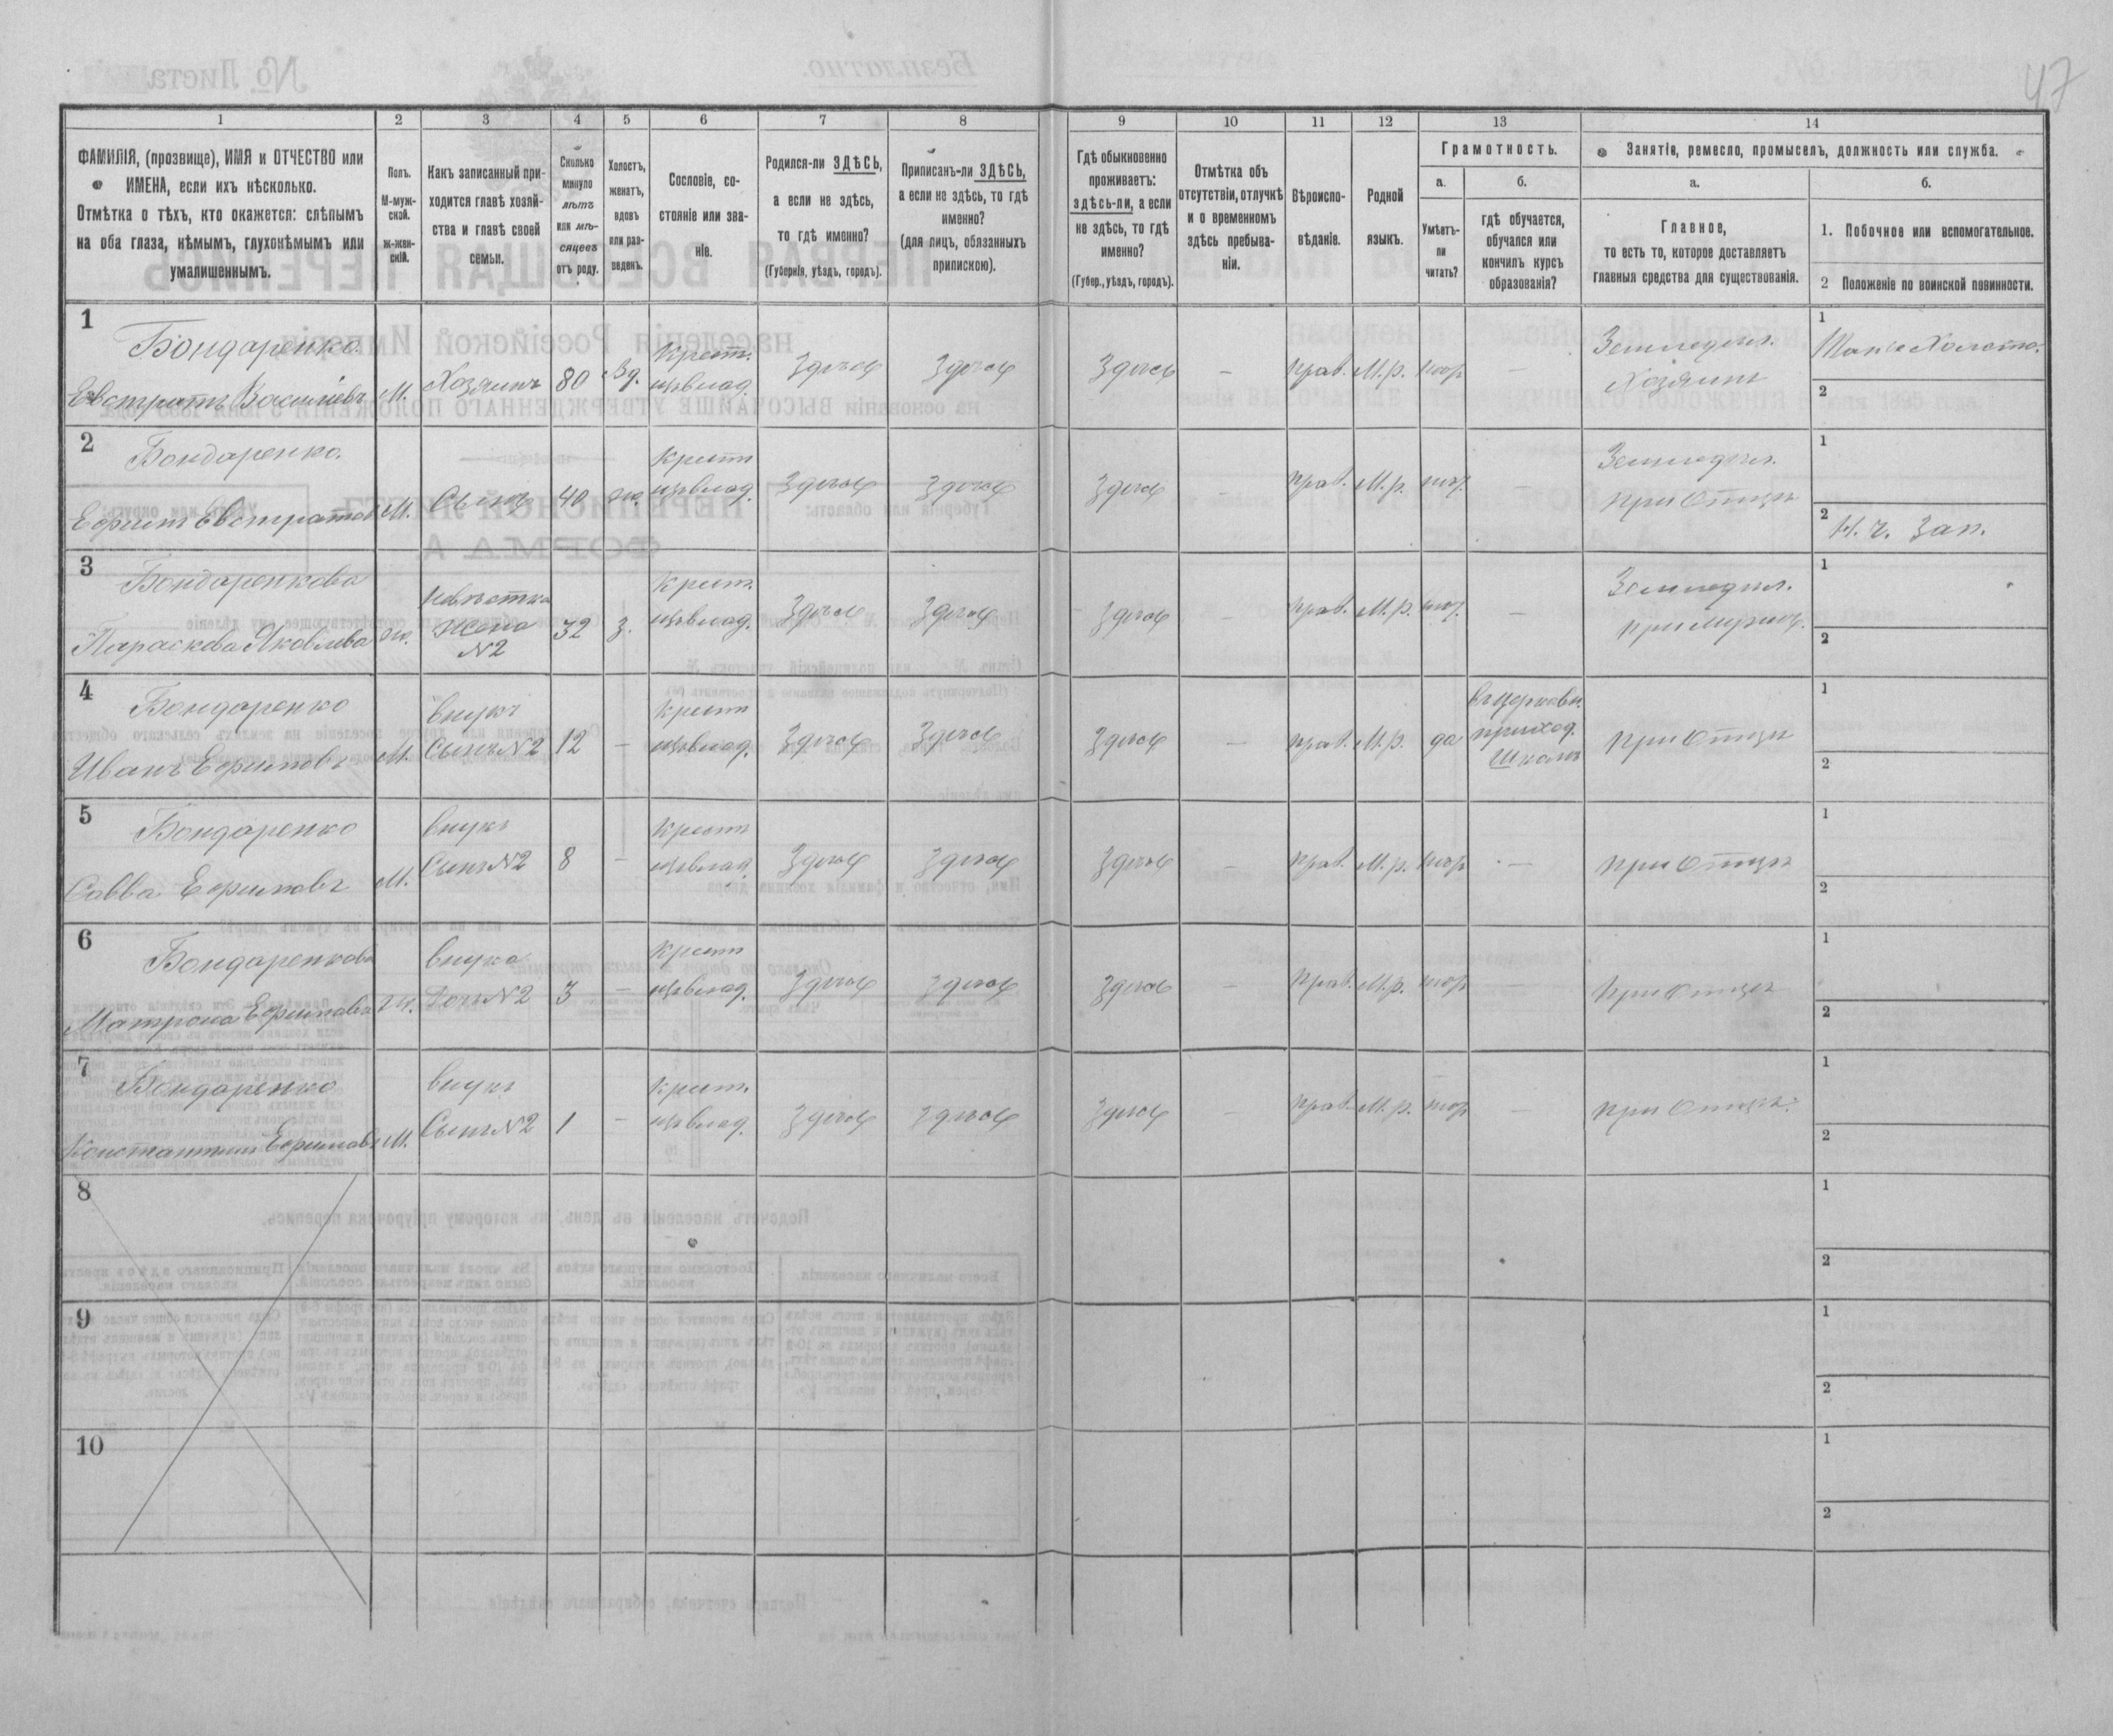 47
1 2 3 4 5 6 7 8 9 10 11 12 13 14
ФАМИЛІЯ, (прозвище), ИМЯ и ОТЧЕСТВО или
ИМЕНА, если ихъ нѣсколько.
Отмѣтка о тѣхъ, кто окажется: слѣпымъ
на оба глаза, нѣмымъ, глухонѣмымъ или
умалишеннымъ.
Полъ.
М-муж-
ской.
ж-жен-
скій.
Какъ записанный при-
ходится главѣ хозяй-
ства и главѣ своей
семьи.
Сколько
минуло
лѣтъ
или мѣ-
сяцевъ
отъ роду.
Холостъ,
женатъ,
вдовъ
или раз-
веденъ.
Сословіе, со-
стояніе или зва-
ніе.
Родился-ли ЗДѢСЬ,
а если не здѣсь,
то гдѣ именно?
(Губернія, уѣздъ, городъ).
Приписанъ-ли ЗДѢСЬ,
а если не здѣсь, то гдѣ
именно?
(для лицъ, обязанныхъ
припискою).
Гдѣ обыкновенно
проживаетъ:
здѣсь-ли, а если
не здѣсь, то гдѣ
именно?
(Губер., уѣздъ, городъ).
Отмѣтка объ
отсутствіи, отлучкѣ
и о временномъ
здѣсь пребыва-
ніи.
Вѣроиспо-
вѣданіе.
Родной
языкъ.
Грамотность.
а.
Умѣетъ-
ли
читать?
б.
гдѣ обучается,
обучался или
кончилъ курсъ
образованія?
Занятіе, ремесло, промыселъ, должность или служба.
а.
Главное,
то есть то, которое доставляетъ
главныя средства для существованія.
б.
1. Побочное или вспомогательное.
2 Положеніе по воинской повинности.
1
Бондаренко
Евстратъ Васильевъ
М.
Хозяинъ
80
Вд.
Крест.
Здѣсь
Здѣсь
Здѣсь
—
прав.
М.р.
—
Земледѣл.
Хозяинъ
1
2
2
Бондаренко.
Ефимъ Евстратов
М.
Сынъ
40
Крест
Здѣсь
Здѣсь
Здѣсь
—
прав.
М.р.
—
Земледѣл.
при Отцѣ
1
2
Н. ч. Зап.
3
Бондаренкова
Параскева Яковлева
ж.
Невѣстка
Жена
№2
32
З.
Крест.
Здѣсь
Здѣсь
Здѣсь
прав.
М.р.
—
Земледѣл.
при мужѣ.
1
2
4
Бондаренко
Иванъ Ефимовъ
М.
внукъ
Сынъ №2
12
—
Крест
Здѣсь
Здѣсь
Здѣсь
—
прав.
М.р.
да
въ церковн.
приход.
Школѣ
при Отцѣ
1
2
5
Бондаренко
Савва Ефимовъ
М.
внукъ
Сынъ №2
8
—
Крест
Здѣсь
Здѣсь
Здѣсь
—
прав.
М.р.
—
при Отцѣ
1
2
6
Бондаренкова
Матрона Ефимова
ж.
внука
Дочь №2
3
—
Крест
Здѣсь
Здѣсь
Здѣсь
—
прав.
М.р.
—
при Отцѣ
1
2
7
Бондаренко
Константинъ Ефимовъ
М.
внукъ
Сынъ №2
1
—
Крест.
Здѣсь
Здѣсь
Здѣсь
прав.
М.р.
—
при Отцѣ.
1
2
8
1
2
9
1
2
10
1
2